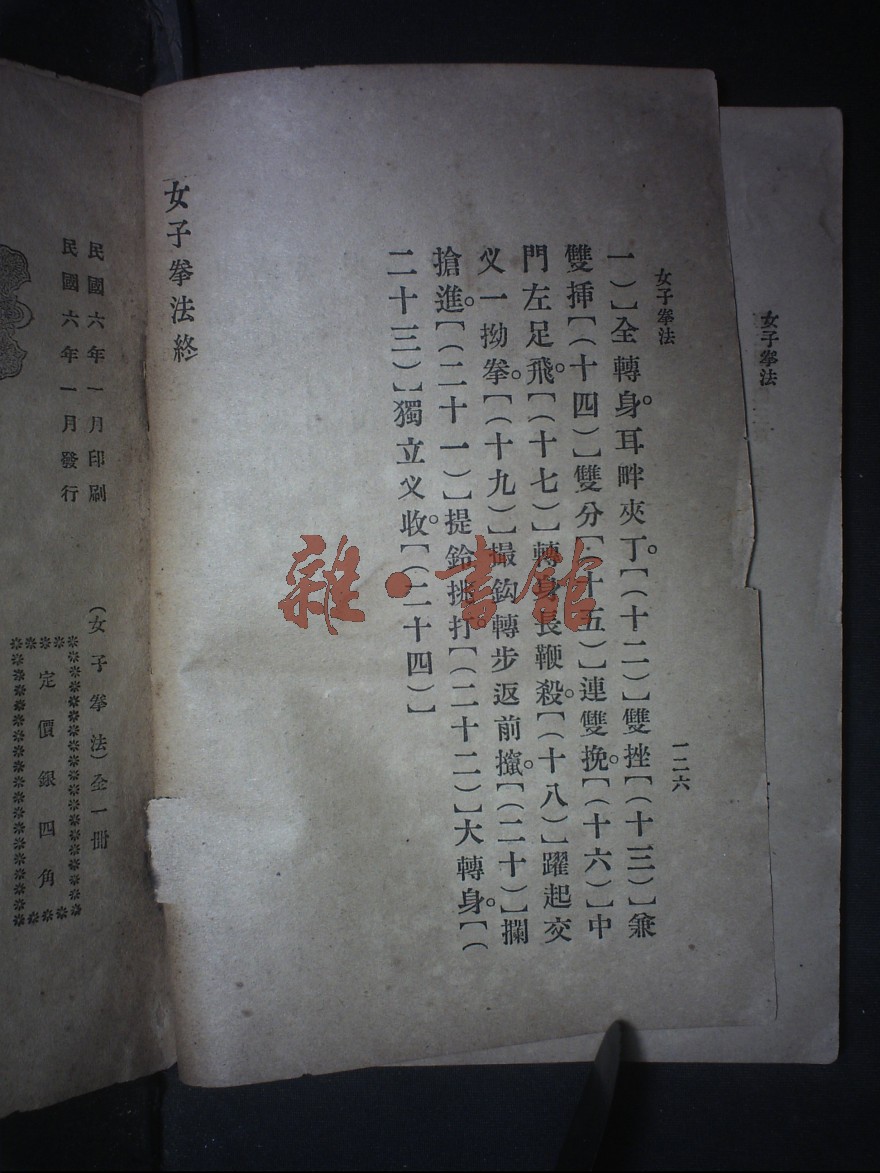 女子拳法
女子拳法
一二六
一）】全轉身。耳畔夾丁。【（十二）】雙挫【（十三）】兼
雙揷【（十四）】雙分【（十五）】連雙挽。【（十六）】中
門左足飛。【（十七）】轉身長鞭殺。【（十八）】躍起交
义一拗拳。【（十九）】撮鈎轉步返前攛。【（二十）】攔
搶進。【（二十一）】提鈴挑打。【（二十二）】大轉身。【（
二十三）】獨立义收。【（二十四）】
女子拳法終
雜·書館
民國六年一月印刷
民國六年一月發行
（女子拳法）全一冊
定價銀四角